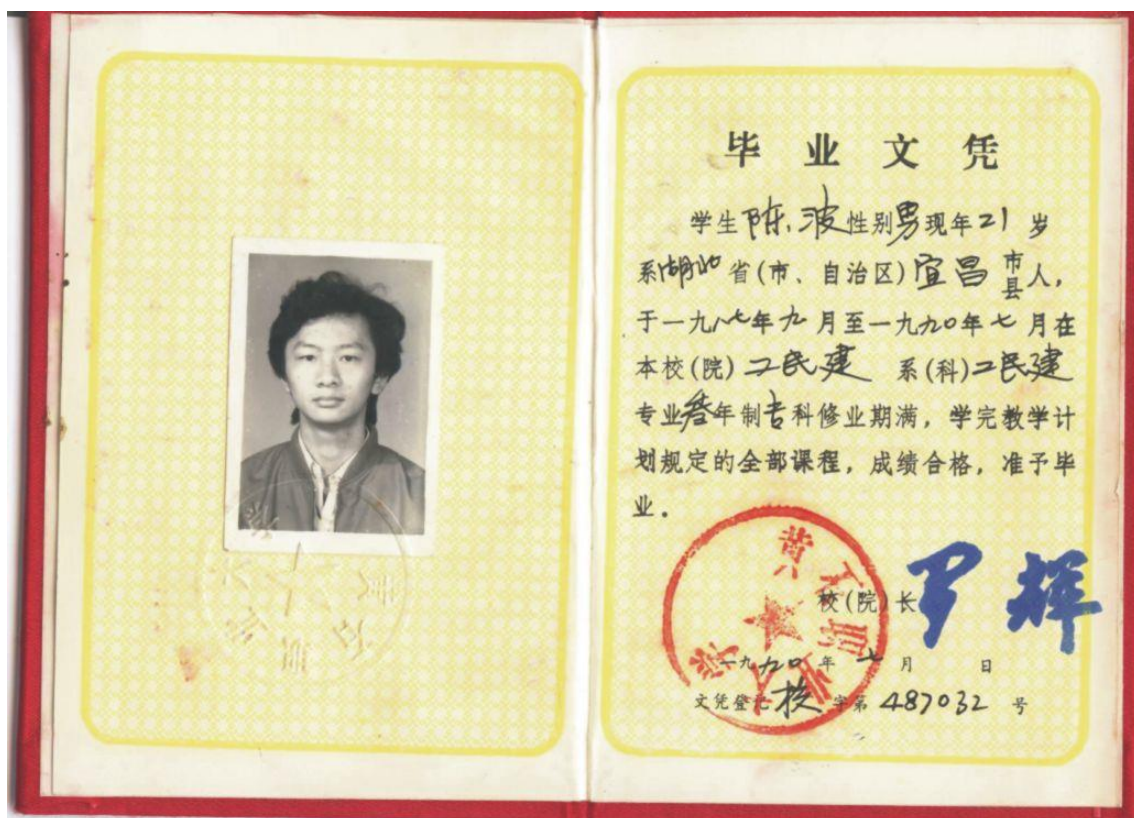 毕业文凭
学生陈波性别男现年21岁
系湖北省(市、自治区)宜昌市县人,
于一九八七年九月至一九九〇年七月在
本校(院)工民建系(科)工民建
专业叁年制专科修业期满,学完教学计
划规定的全部课程,成绩合格,准予毕
业.
黄石职业大学
校(院)长 罗辉
一九九〇年七月 日
文凭登记技字第487032号